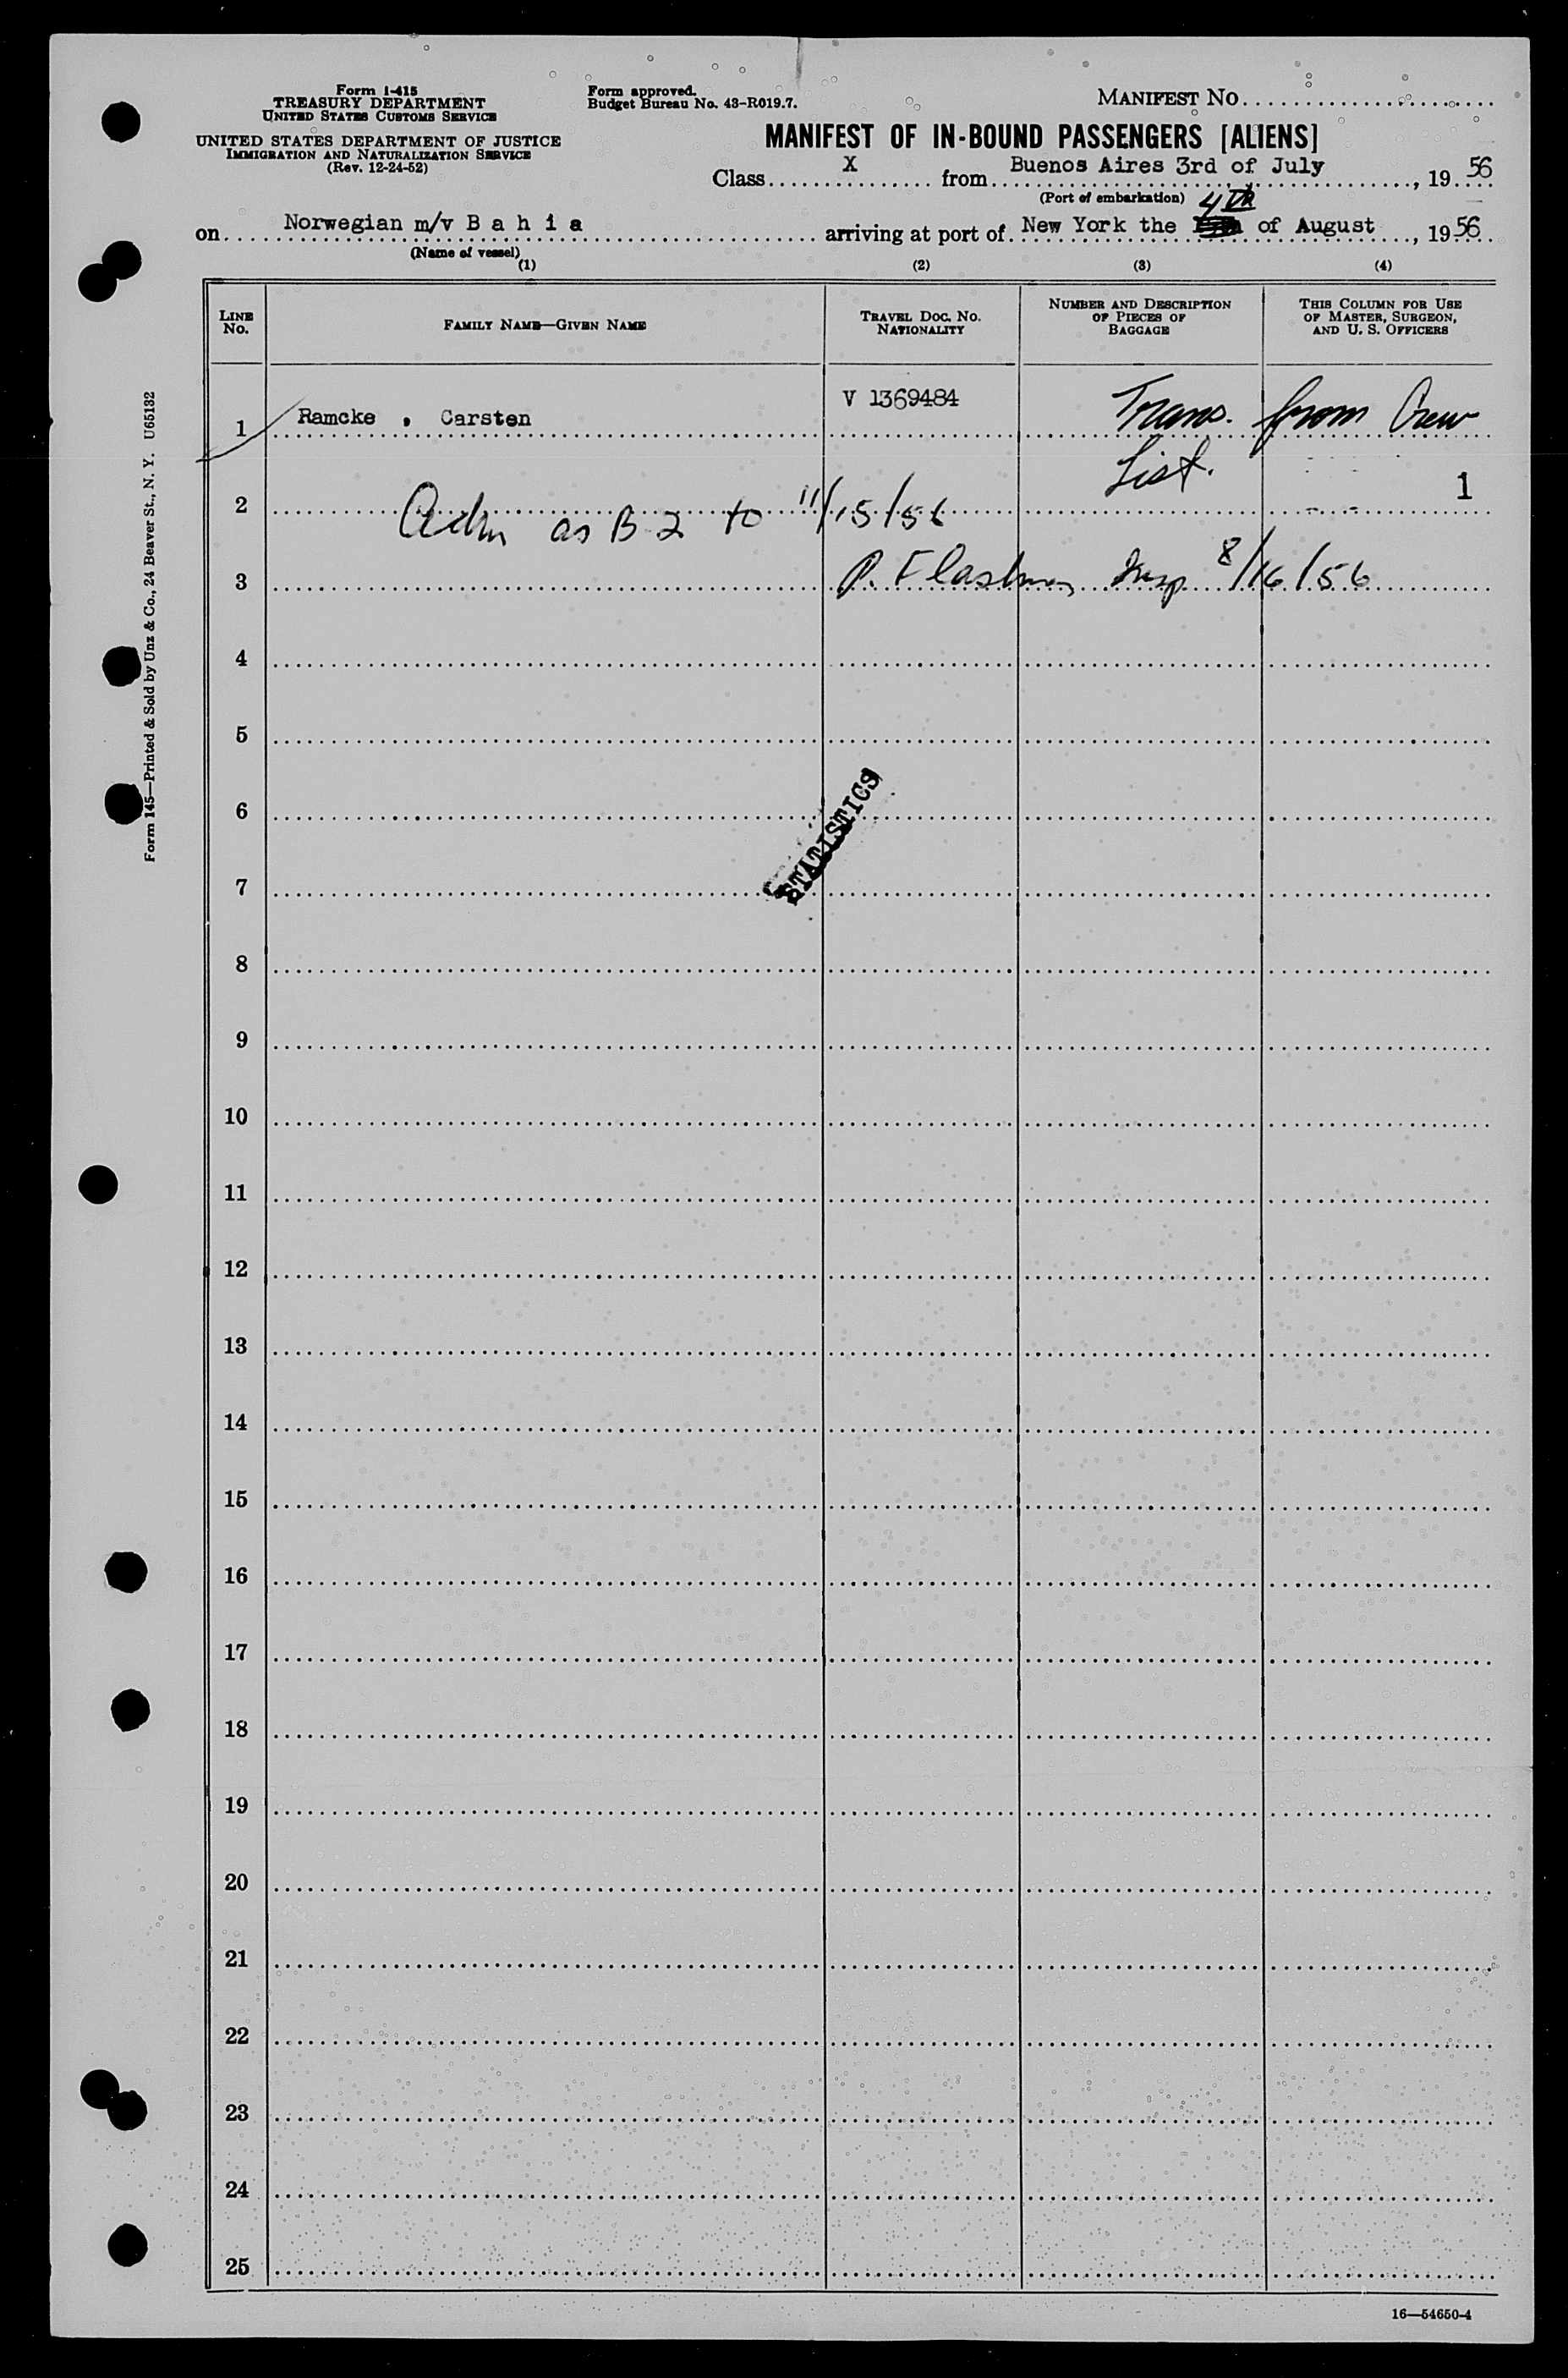 Form I-415
TREASURY DEPARTMENT
UNITED STATES CUSTOMS SERVICE
UNITED STATES DEPARTMENT OF JUSTICE
IMMIGRATION AND NATURALIZATION SERVICE
(Rev. 12-24-52)
Form approved.
Budget Bureau No. 43-R019.7.
MANIFEST NO
MANIFEST OF IN-BOUND PASSENGERS [ALIENS]
Class X from Buenos Aires 3rd of July, 1956
(Port of embarkation)
on Norwegian m/v B a h i a arriving at port of New York the 4th of August, 1956
(Name of vessel)
(1) (2) (3) (4)
LINE No. FAMILY NAME—GIVEN NAME TRAVEL DOC. NO. NATIONALITY NUMBER AND DESCRIPTION OF PIECES OF BAGGAGE THIS COLUMN FOR USE OF MASTER, SURGEON, AND U. S. OFFICERS
1 Ramcke , Carsten V 1369484 Trans. from Crew
List.
2 Adm as B 2 to 11/15/56 1
3 P. Insp 8/16/56
4
5
6
STATISTICS
7
8
9
10
11
12
13
14
15
16
17
18
19
20
21
22
23
24
25
16—54650-4
Form 145—Printed & Sold by Unz & Co., 24 Beaver St., N. Y. U65132